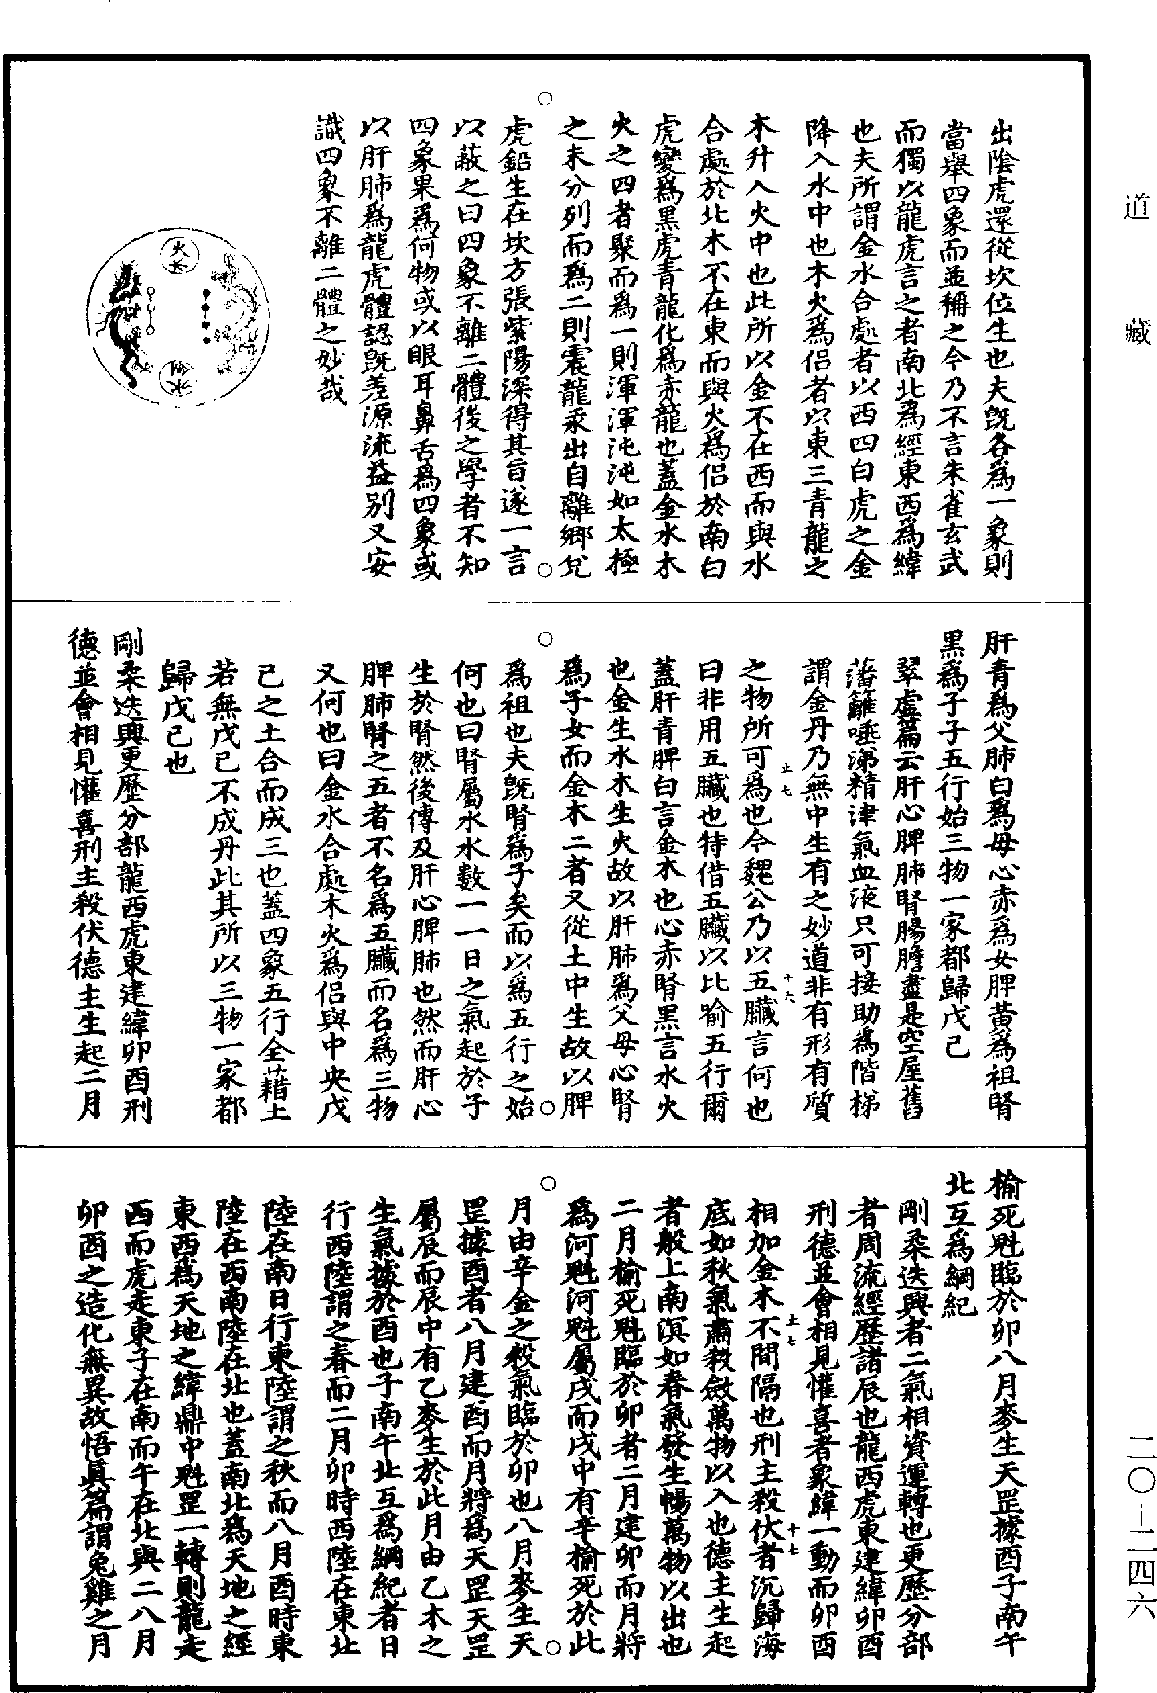 道藏
出陰虎還從坎位生也夫旣各爲一象則
當舉四象而並稱之今乃不言朱雀玄武
而獨以龍虎言之者南北爲經東西爲緯
也夫所謂金水合處者以西四白虎之金
降入水中也木火爲侶者以東三青龍之
木升入火中也此所以金不在西而與水
合處於北木不在東而與火爲侶於南白
虎變爲黑虎青龍化爲赤龍也蓋金水木
火之四者聚而爲一則渾渾沌沌如太極
之未分列而爲二則震龍汞出自離鄉兌
虎鉛生在坎方張紫陽深得其旨遂一言
以蔽之曰四象不離二體後之學者不知
四象果爲何物或以眼耳鼻舌爲四象或
以肝肺爲龍虎體認旣差源流益別又安
識四象不離二體之妙哉
火
水
肝青爲父肺白爲母心赤爲女脾黃爲祖腎
黑爲子子五行始三物一家都歸戊己
翠虛篇云肝心脾肺腎腸膽盡是空屋舊
藩籬唾涕精津氣血液只可接助爲階梯
謂金丹乃無中生有之妙道非有形有質
之物所可爲也今魏公乃以五臟言何也
上七
十六
曰非用五臟也特借五臟以比喻五行爾
蓋肝青脾白言金木也心赤腎黑言水火
也金生水木生火故以肝肺爲父母心腎
爲子女而金木二者又從土中生故以脾
爲祖也夫旣腎爲子矣而以爲五行之始
何也曰腎屬水水數一一日之氣起於子
生於腎然後傳及肝心脾肺也然而肝心
脾肺腎之五者不名爲五臟而名爲三物
又何也曰金水合處木火爲侶與中央戊
己之土合而成三也蓋四象五行全藉土
若無戊己不成丹此其所以三物一家都
歸戊己也
剛柔迭興更歷分部龍西虎東建緯卯酉刑
德並會相見懽喜刑主殺伏德主生起二月
榆死魁臨於卯八月麥生天罡據酉子南午
北互爲綱紀
剛柔迭興者二氣相資運轉也更歷分部
者周流經歷諸辰也龍西虎東建緯卯酉
刑德並會相見懽喜者象緯一動而卯酉
相加金木不間隔也刑主殺伏者沉歸海
上七
十七
底如秋氣肅殺斂萬物以入也德主生起
者般上南溟如春氣發生暢萬物以出也
二月榆死魁臨於卯者二月建卯而月將
爲河魁河魁屬戌而戌中有辛榆死於此
月由辛金之殺氣臨於卯也八月麥生天
罡據酉者八月建酉而月將爲天罡天罡
屬辰而辰中有乙麥生於此月由乙木之
生氣據於酉也子南午北互爲綱紀者日
行西陸謂之春而二月卯時西陸在東北
陸在南日行東陸謂之秋而八月酉時東
陸在西南陸在北也蓋南北爲天地之經
東西爲天地之緯鼎中魁罡一轉則龍走
西而虎走東子在南而午在北與二八月
卯酉之造化無異故悟眞篇謂兔雞之月
二〇-二四六